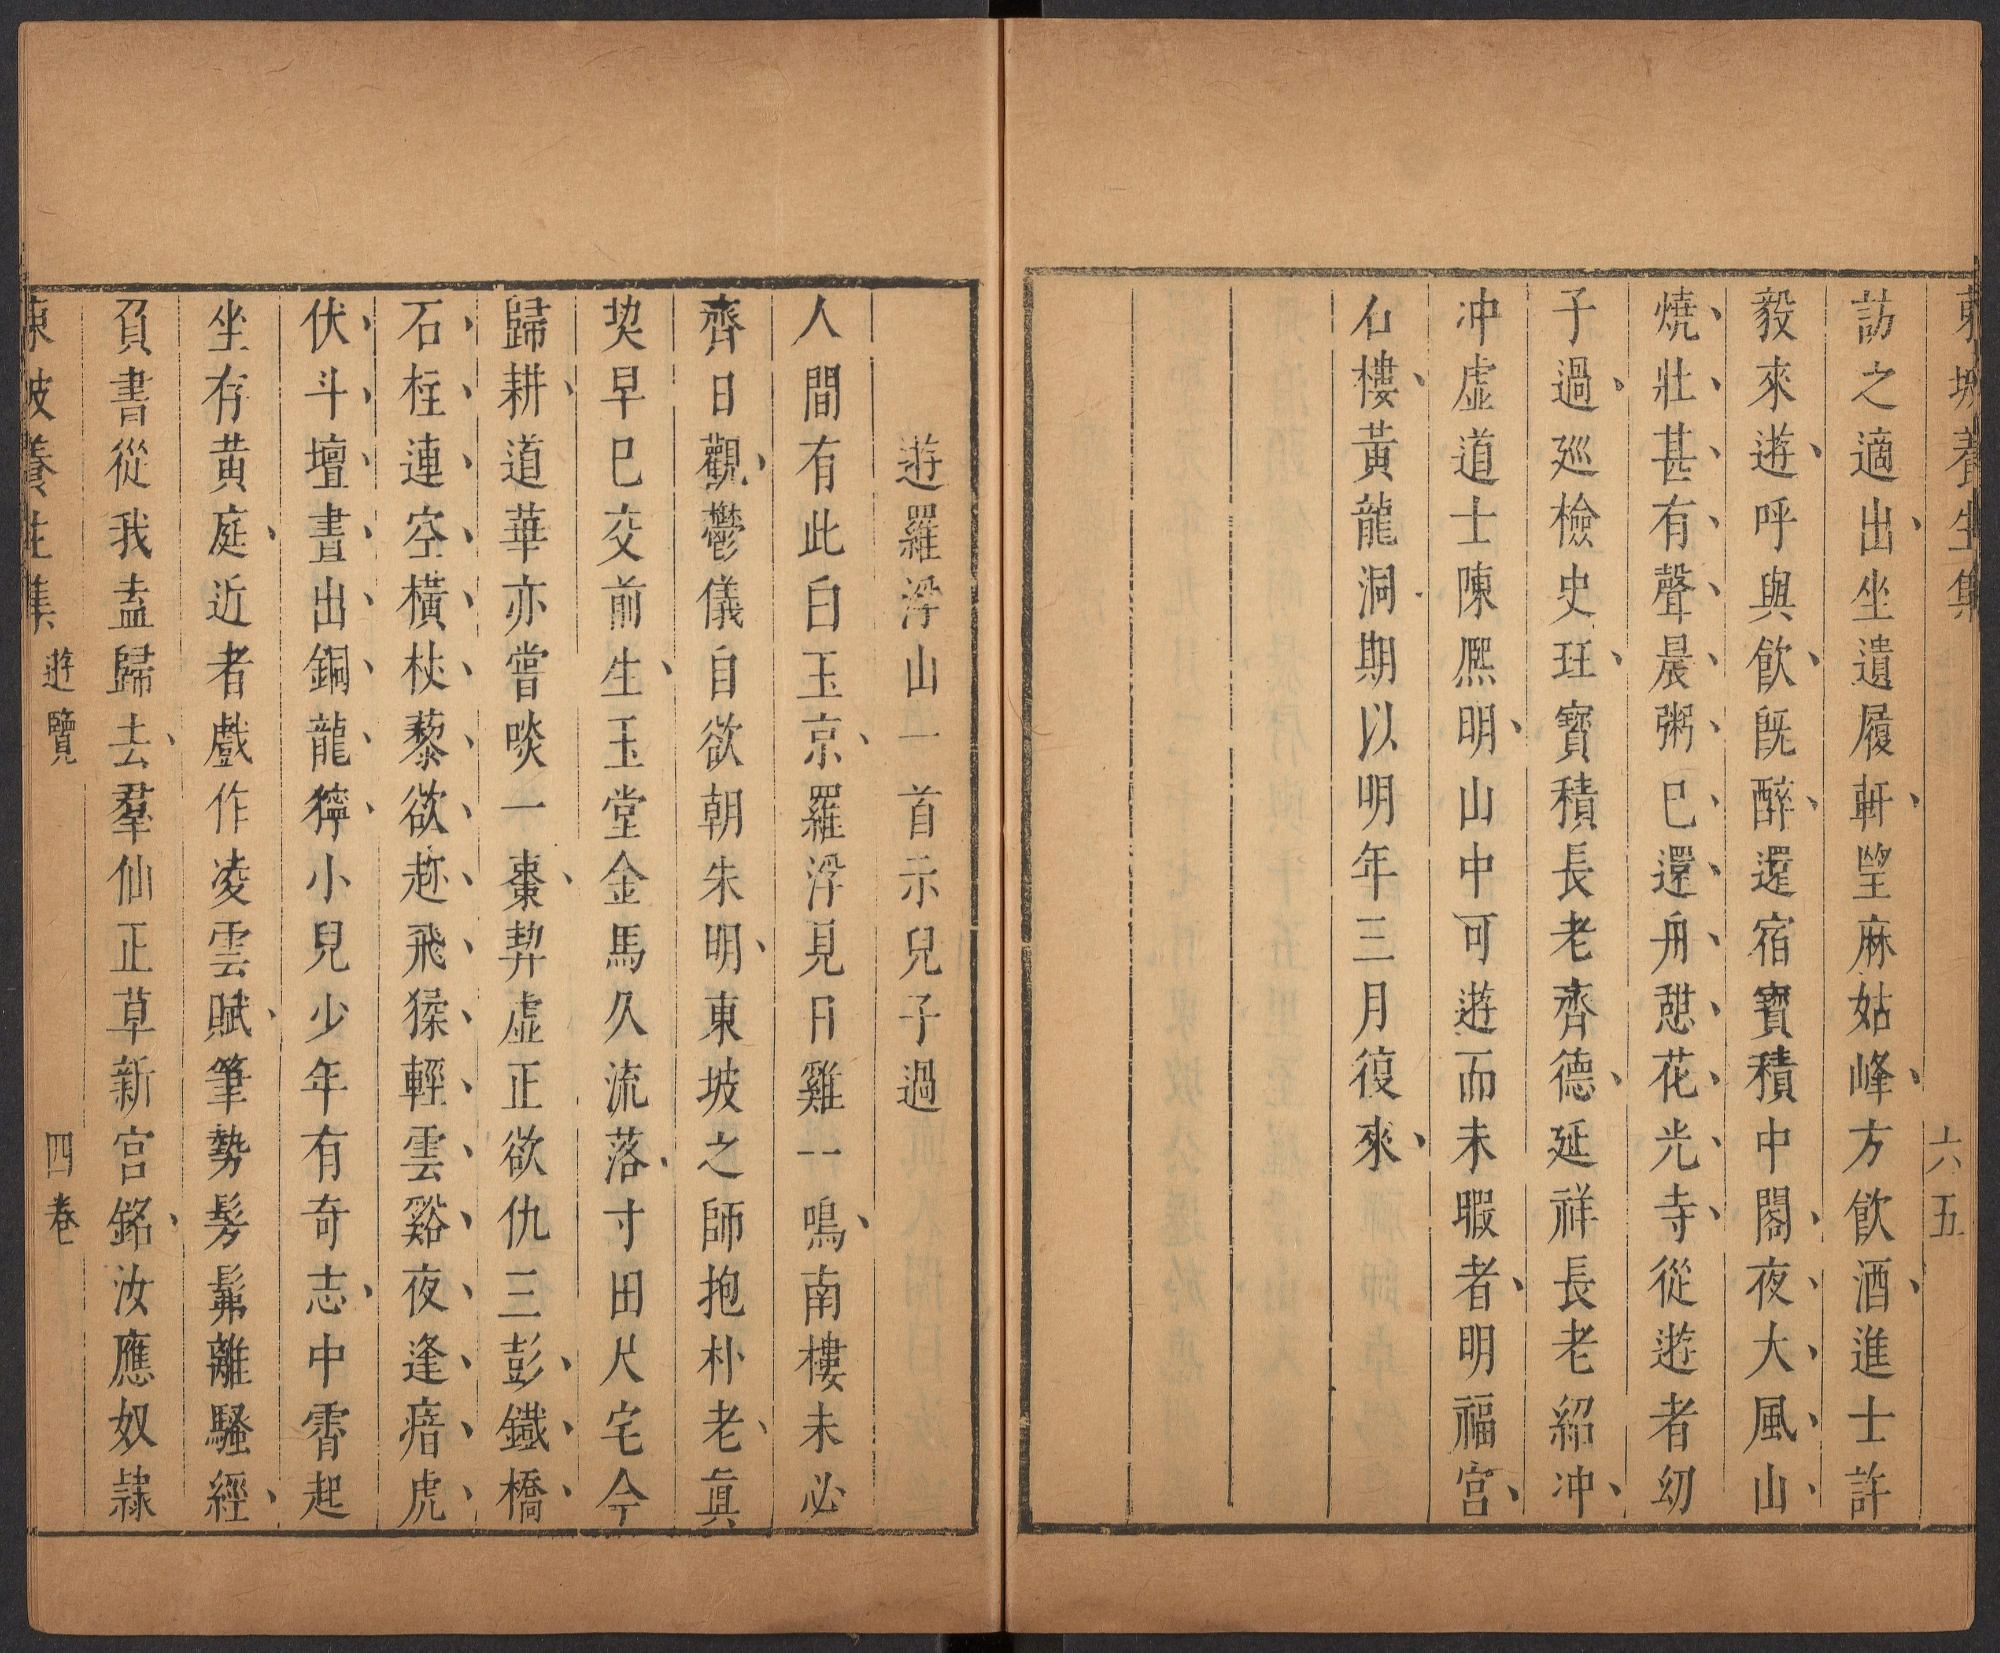 東坡養生集 六五
訪之適出、坐遺履軒、望麻姑峰、方飲酒、進士許
毅來遊、呼與飲、旣醉、還宿寶積中閣、夜大風、山
燒、壯、甚、有、聲、晨、粥、巳、還、舟、憇、花、光、寺、從遊者幼
子過、巡檢史珏、寶積長老齊德、延祥長老紹冲、
冲虛道士陳熈明、山中可遊而未暇者、明福宫、
石樓、黃龍洞期以明年三月復來、
遊羅浮山一首示兒子過
人間有此白玉京、羅浮見日雞一鳴、南樓未必
齊日觀、鬱儀自欲朝朱明、東坡之師抱朴老、眞
契早巳交前生、玉堂金馬久流落、寸田尺宅今
歸耕、道華亦嘗啖一棗、契虛正欲仇三彭、鐵、橋、
石、柱、連、空、橫、杖、藜、欲、趂、飛、猱、輕、雲、谿、夜、逢、瘖、虎、
伏、斗、壇、晝、出、銅、龍、獰、小兒少年有奇志、中霄起
坐存黄庭、近者戲作凌雲賦、筆勢髣髴離騷經、
負書從我盍歸去、羣仙正草新宫銘、汝應奴隷
東坡養生集 遊覽 四卷